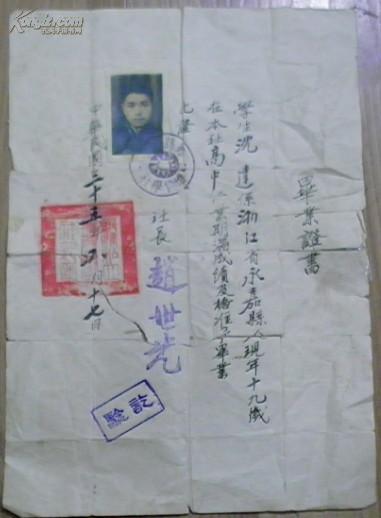 畢業證書
學生沈 達係浙江省永嘉縣人現年十九歲
在本社高中 業期滿成績及格准予畢業
此證
社長 趙世
中華民國三十五年 月十七日
驗訖
Kongfz.com
孔夫子旧书网